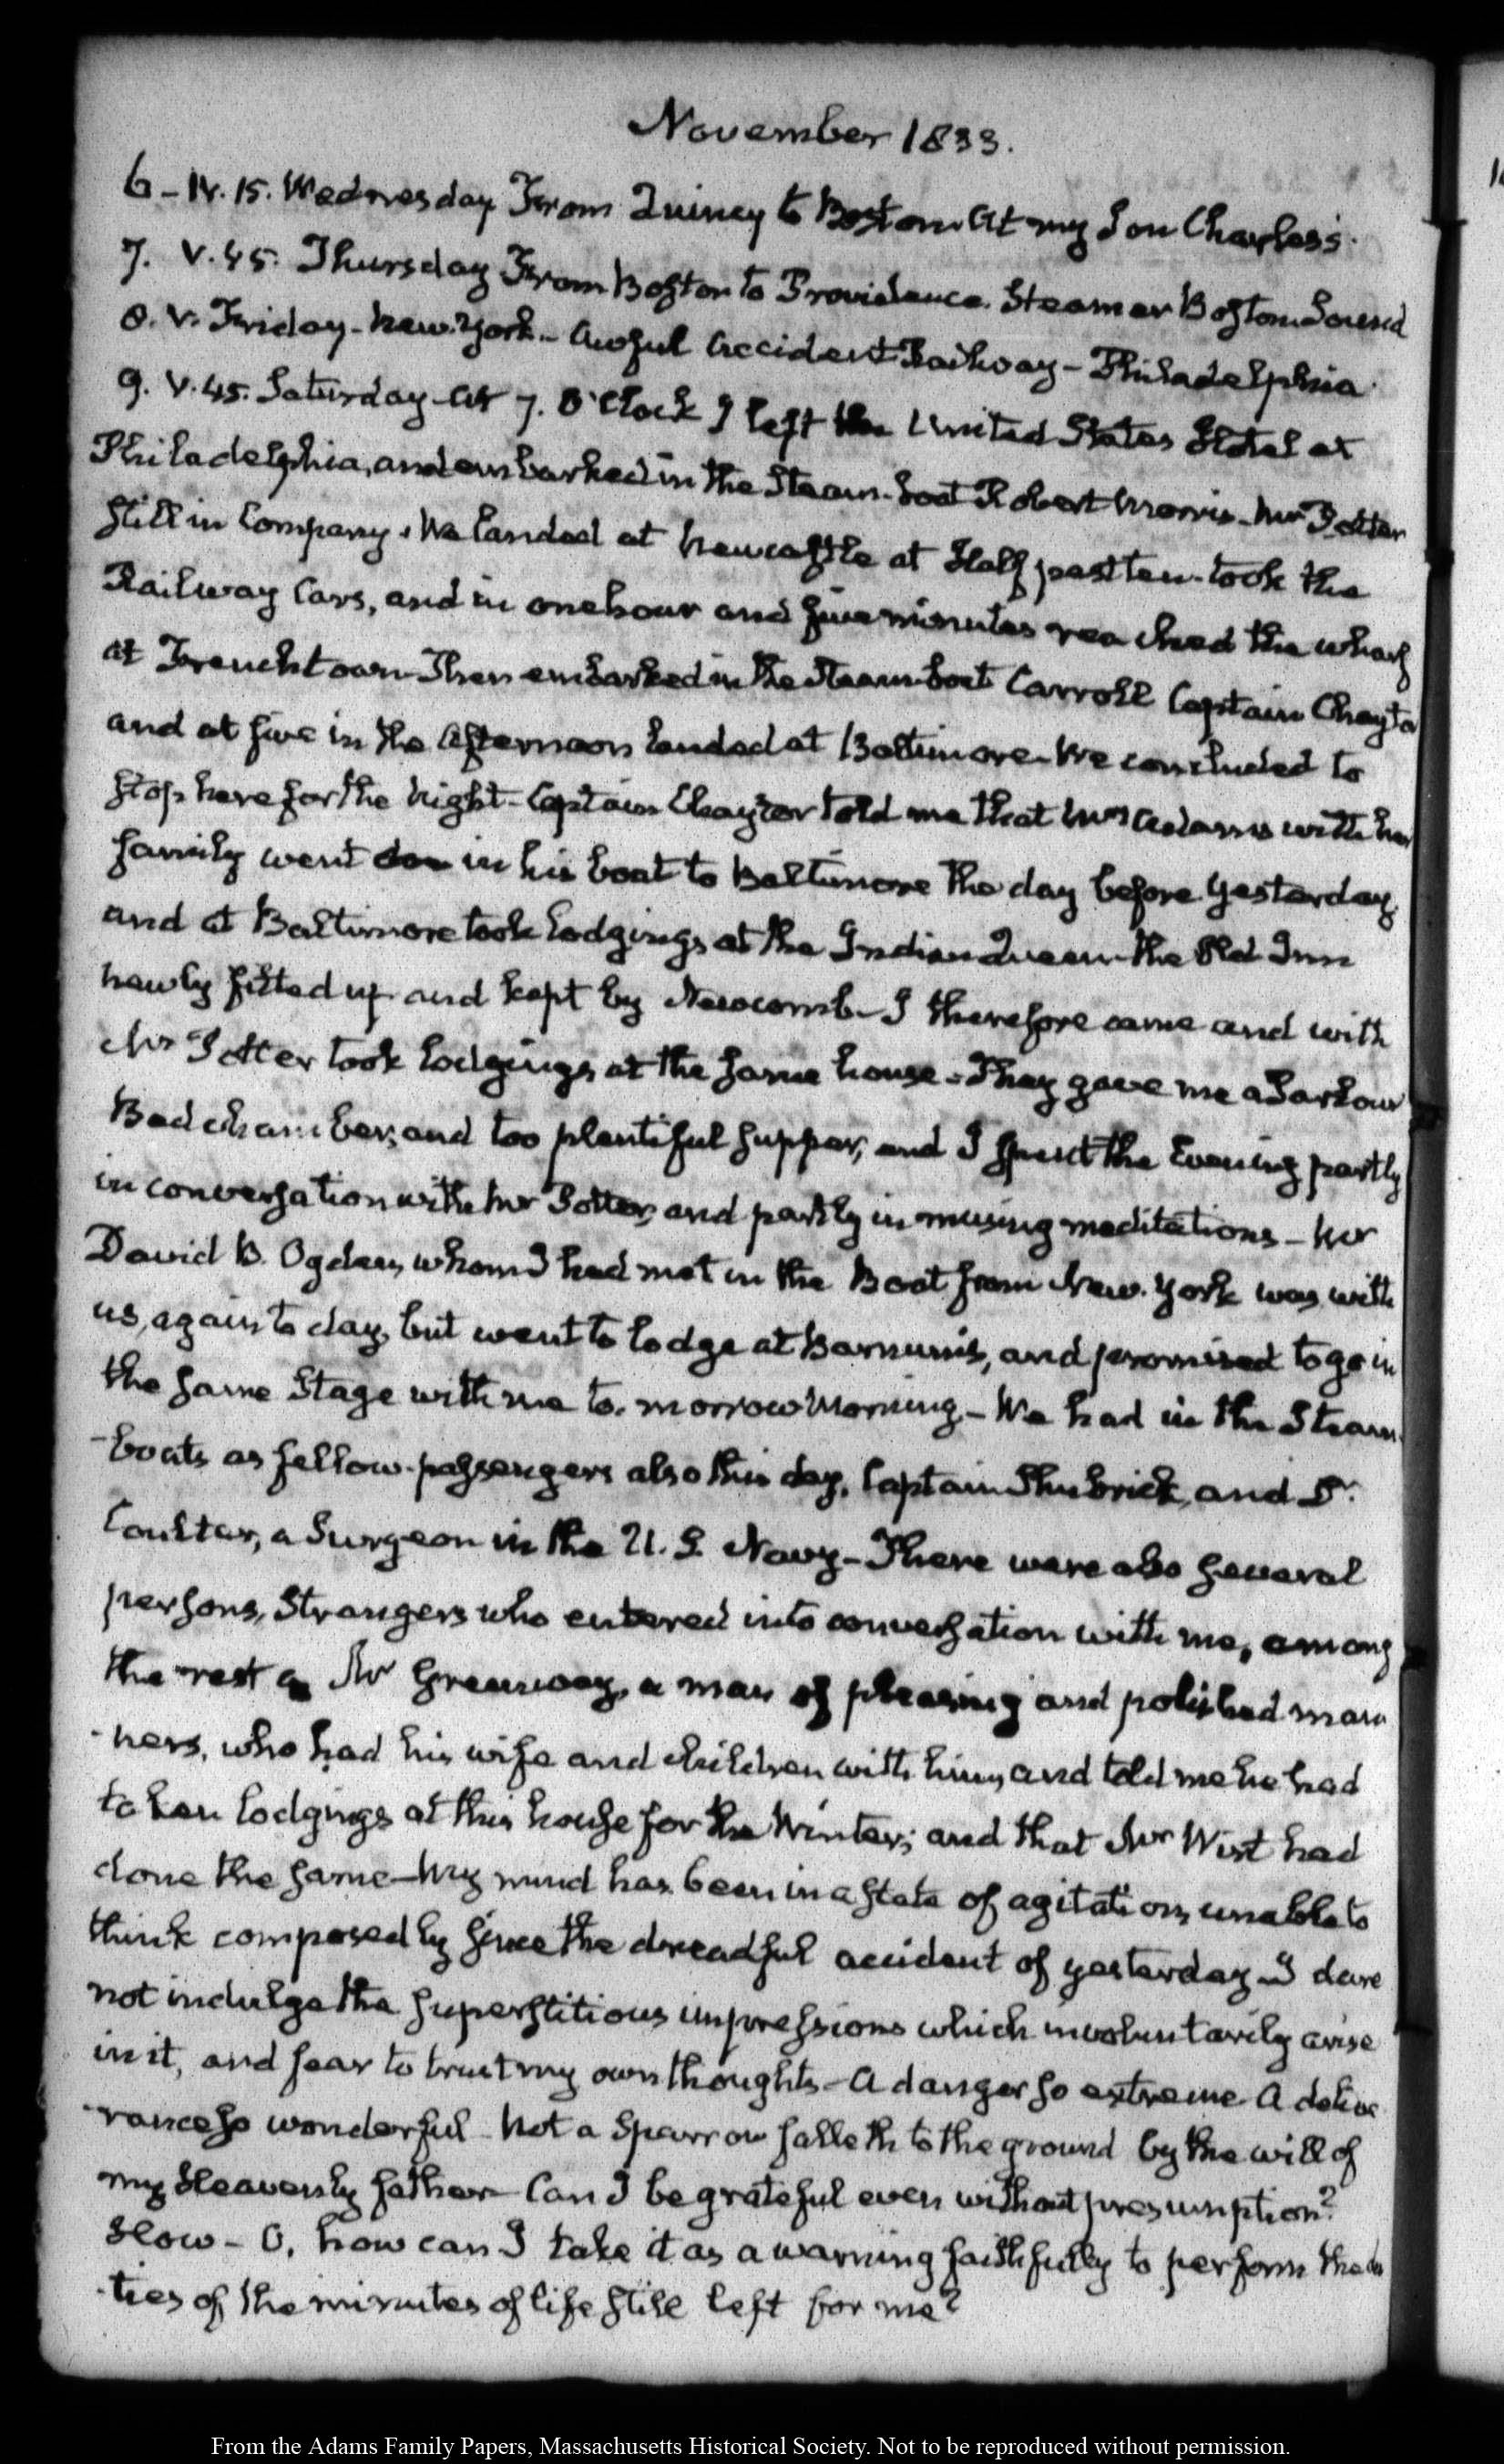 November 1833.
6 - IV. 15. Wednesday From Quincy to Boston At my Son Charles's.
7. V. 45. Thursday From Boston to Providence. Steamer Boston. Sound
8. V. Friday - New York - Awful accident Railway - Philadelphia
9. V. 45. Saturday - At 7. O'Clock I left the United States Hotel at
Philadelphia, and embarked in the Steam-boat Robert Morris. Mr Potter
still in Company. We landed at Newcastle at Half past ten - took the
Railway Cars, and in one hour and five minutes reached the wharf
at Frenchtown - Then embarked in the Steam-boat Carroll Captain Chayto
and at five in the afternoon landed at Baltimore - We concluded to
stop here for the night - Captain Chaytor told me that Mrs Adams with her
family went in his boat to Baltimore the day before yesterday,
and at Baltimore took lodgings at the Indian Queen - the Old Inn
newly fitted up and kept by Newcomb - I therefore came and with
Mr Potter took lodgings at the same house - They gave me a Parlour
Bed chamber, and too plentiful supper, and I spent the Evening partly
in conversation with Mr Potter, and partly in musing meditations - Mr
David B. Ogden, whom I had met in the Boat from New-York was with
us, again to day, but went to lodge at Barnum's, and promised to go in
the same Stage with me to-morrow Morning - We had in the Steam-
-boats as fellow-passengers also this day, Captain Shubrick, and Dr
Coulter, a Surgeon in the U. S. Navy - There were also several
persons, Strangers who entered into conversation with me, among
the rest a Mr Greenway, a man of pleasing and polished man
-ners, who had his wife and children with him, and told me he had
taken lodgings at this house for the Winter; and that Mr Wirt had
done the same - My mind has been in a state of agitation, unable to
think composedly since the dreadful accident of yesterday - I dare
not indulge the superstitious impressions which involuntarily arise
in it, and fear to trust my own thoughts - A danger so extreme - A delive
-rance so wonderful - Not a Sparrow falleth to the ground by the will of
my Heavenly father - Can I be grateful even without presumption?
How - O, how can I take it as a warning faithfully to perform the du
-ties of the minutes of life still left for me?
From the Adams Family Papers, Massachusetts Historical Society. Not to be reproduced without permission.